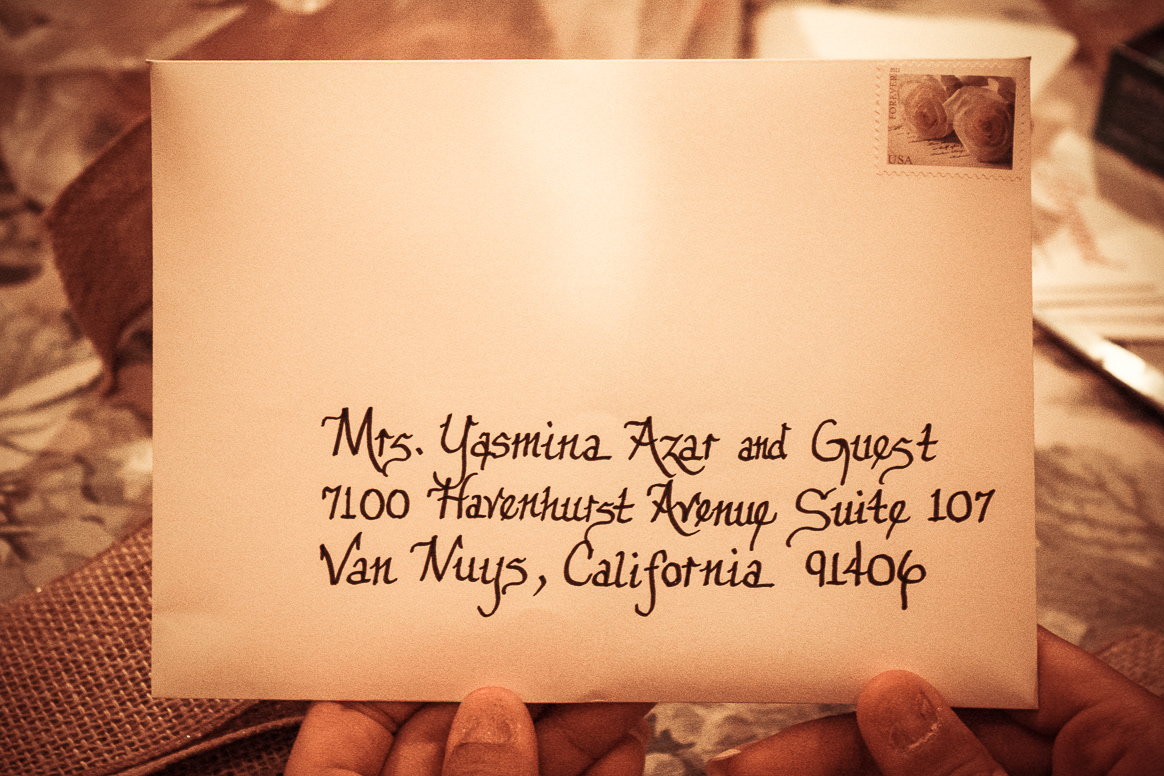 FOREVER
USA
Mrs. Yasmina Azar and Guest
7100 Havenhurst Avenue Suite 107
Van Nuys, California 91406